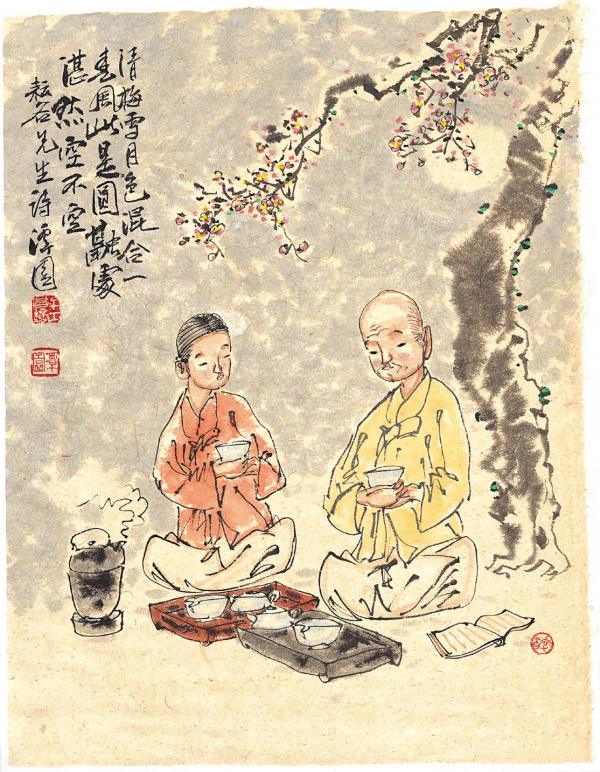 清梅雪月色混合一
風此是圓融處
湛然空不空
耘谷先生詩 潭園